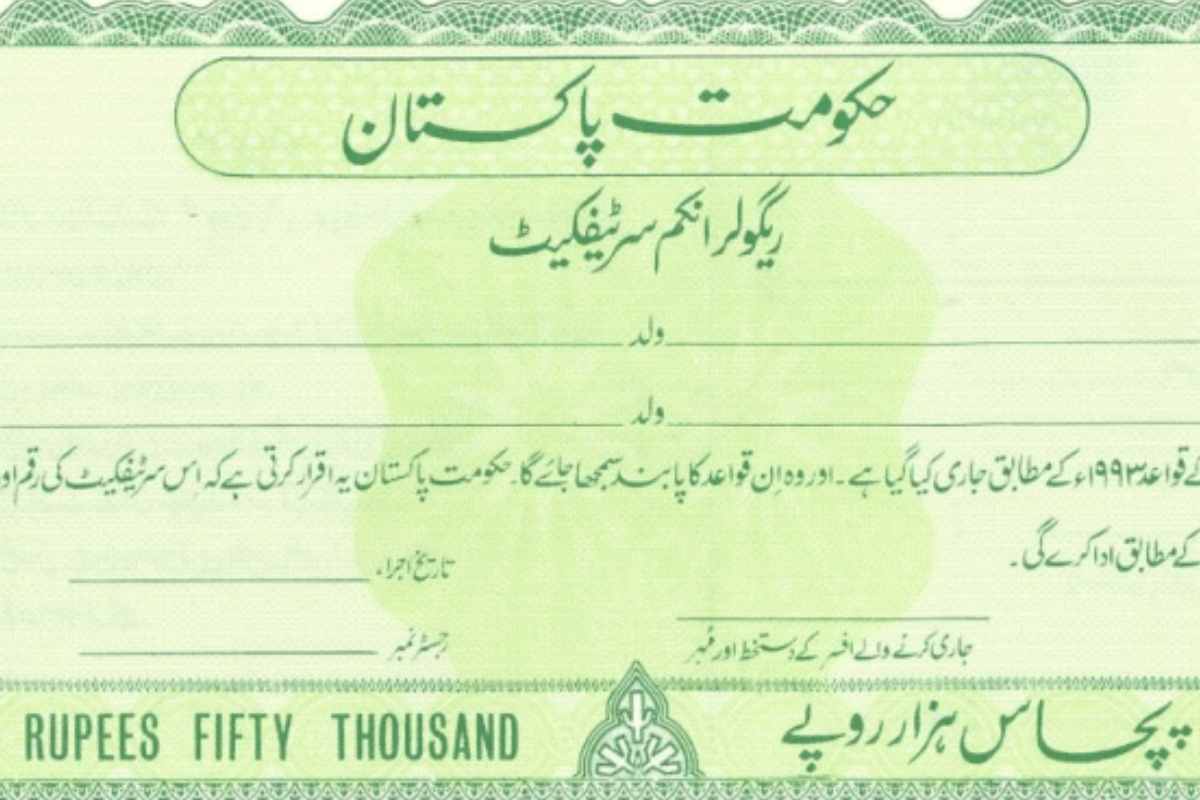 حکومت پاکستان
ریگولر انکم سرٹیفکیٹ
ولد
ولد
کے قواعد ۱۹۹۳ء کے مطابق جاری کیا گیا ہے۔ اور وہ اِن قواعد کا پابند سمجھا جائے گا۔ حکومت پاکستان یہ اقرار کرتی ہے کہ اِس سرٹیفکیٹ کی رقم اور
کے مطابق ادا کرے گی۔
تاریخ اجراء
جاری کرنے والے افسر کے دستخط اور نمبر
رجسٹر نمبر
پچاس ہزار روپے
RUPEES FIFTY THOUSAND